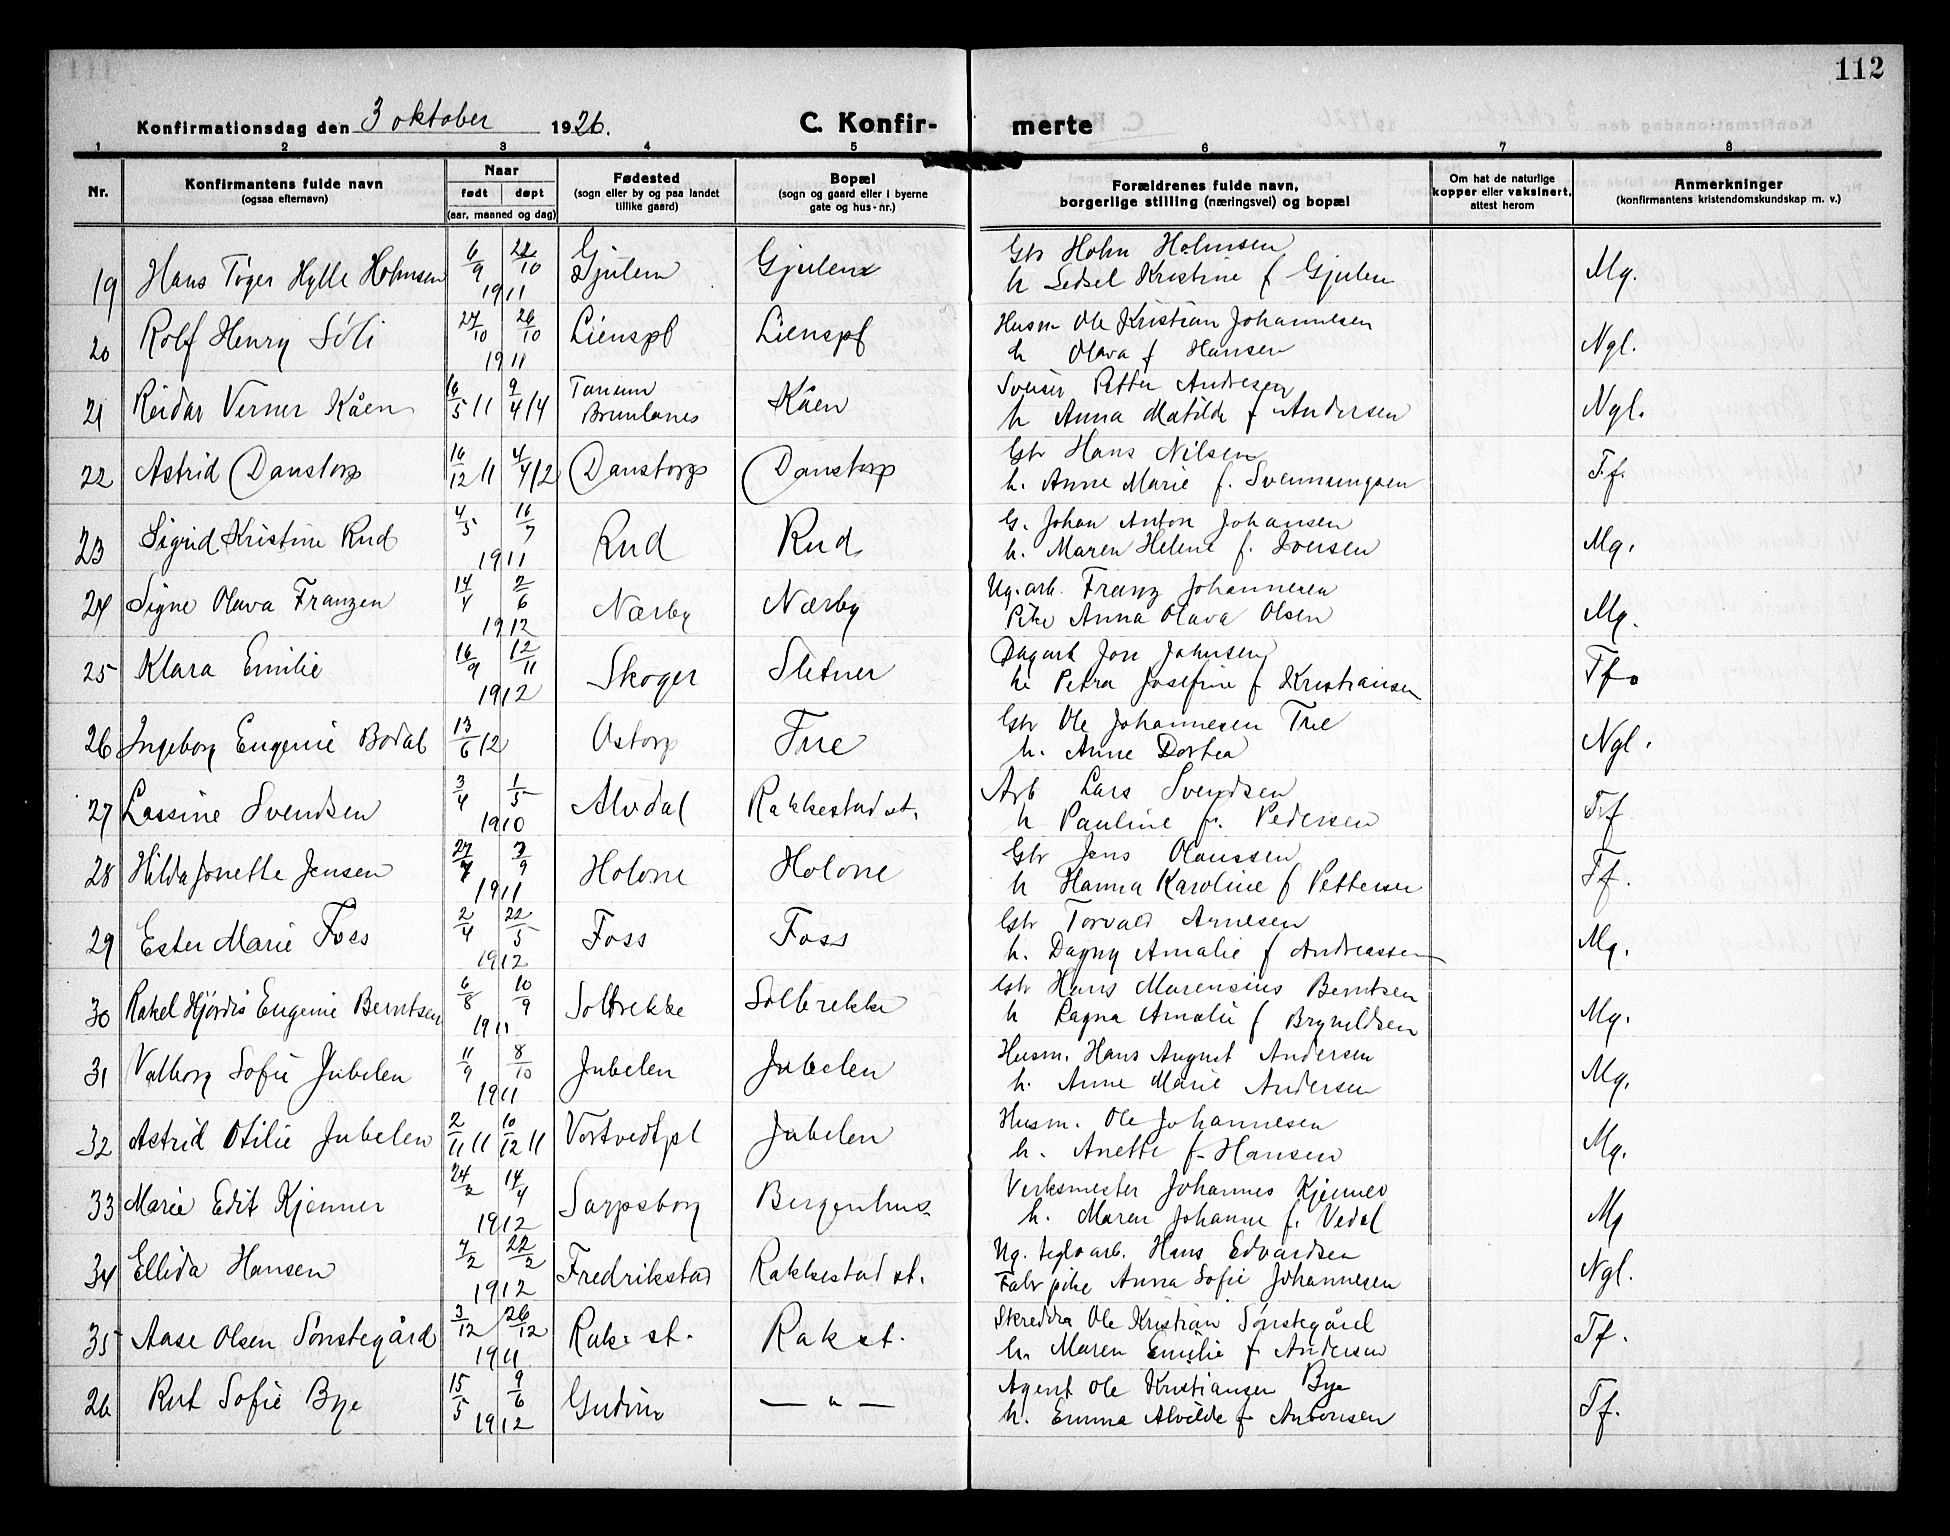 112
Konfirmationsdag den 3 oktober 1926. C. Konfir- merte
1 2 3 4 5 6 7 8
Nr. Konfirmantens fulde navn (ogsaa efternavn) Naar født døpt (aar, maaned og dag) Fødested (sogn eller by og paa landet tillike gaard) Bopæl (sogn og gaard eller i byerne gate og hus-nr.) Forældrenes fulde navn, borgerlige stilling (næringsvei) og bopæl Om hat de naturlige kopper eller vaksinert, attest herom Anmerkninger (konfirmantens kristendomskundskap m. v.)
19 Hans Tøger Hylle Holmsen 6/9 22/10 1911 Gjulem Gjulem Gbr Holm Holmsen
h Sedsel Kristine f Gjulem Mg.
20 Rolf Henry Sóli 27/10 26/10 1911 Lienspl Lienspl Husm Ole Kristian Johannesen
h Olava f Hansen Ngl.
21 Reidar Verner Kåen 16/5 11 9/4 14 Tanum Brunlanes Kåen Sveiser Petter Andresen
h Anna Matilde f Andersen Ngl.
22 Astrid Danstorp 16/12 11 4/4 12 Danstorp Danstorp Gbr Hans Nilsen
h. Anne Marie f. Svenningsen T.f.
23 Sigrid Kristine Rud 4/5 16/7 1911 Rud Rud G. Johan Anton Johansen
h. Maren Helene f. Iversen Mg.
24 Signe Olava Franzen 14/4 2/6 1912 Nærby Nærby Ug.arb. Franz Johannesen
Pike Anna Olava Olsen Mg.
25 Klara Emilie 16/9 12/11 1912 Skoger Sletner Dagarb Jon Johnsen
h. Petra Josefine f Kristiansen Tf.
26 Ingeborg Eugenie Bodal 13/6 12 Ostorp True Gbr Ole Johannesen True
h. Anne Dortea Ngl.
27 Lassine Svendsen 3/4 1/5 1910 Alvdal Rakkestad st. Arb Lars Svendsen
h Pauline f. Pedersen Tf
28 Hilda Jonette Jensen 27/7 3/9 1911 Holone Holone Gbr Jens Olaussen
h Hanna Karoline f Pettersen Tf.
29 Ester Marie Foss 2/4 22/5 1912 Foss Foss Gbr Torvald Arnesen
h. Dagny Amalie f Andreassen Mg.
30 Rakel Hjørdis Eugenie Berntsen 6/8 10/9 1911 Solbrekke Solbrekke Gbr Hans Marensius Berntsen
h Ragna Amalie f Brynildsen Mg.
31 Valborg Sofie Jubelen 11/9 8/10 1911 Jubelen Jubelen Husm. Hans August Andersen
h. Anne Marie Andersen Mg.
32 Astrid Otilie Jubelen 2/11 11 10/12 11 Vortvedtpl Jubelen Husm. Ole Johannesen
h. Anette f. Hansen Mg.
33 Marie Edit Kjenner 24/2 14/4 1912 Sarpsborg Bergenhus Verksmester Johannes Kjenner
h. Maren Johanne f. Vedal Mg
34 Ellida Hansen 4/2 22/2 1912 Fredrikstad Rakkestad st. Ug. teglv arb. Hans Edvardsen
Fabr pike Anna Sofie Johannesen Ngl.
35 Aase Olsen Sønstegård 3/12 26/12 1911 Rak. st. Rak st. Skredder Ole Kristian Sønstegård
h. Maren Emilie f Andersen Tf.
26 Rut Sofie Bye 15/5 9/6 1912 Gudim — " — Agent Ole Kristiansen Bye
h. Emma Alvilde f Antonsen Tf.